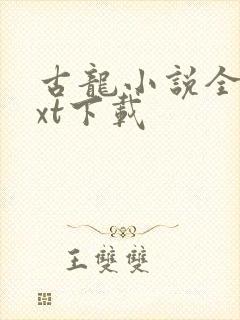 古龍小說全
xt下載
王雙雙